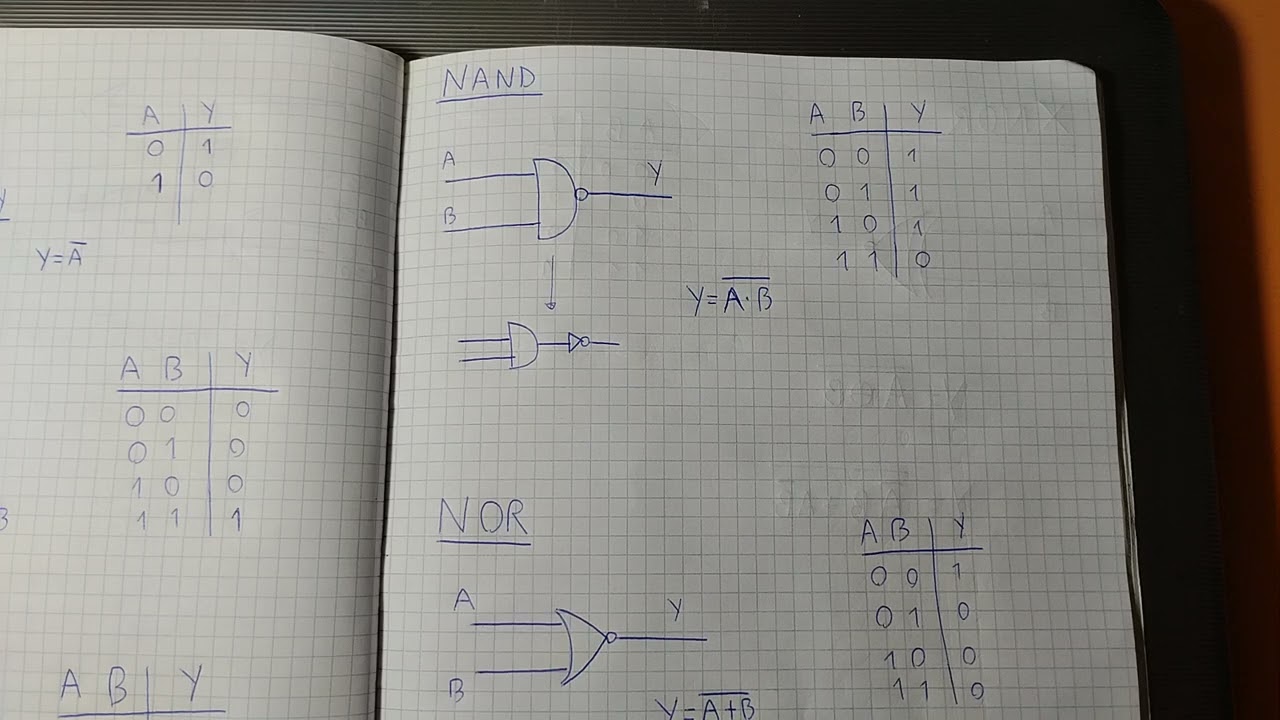 A Y
0 1
1 0
Y=A̅
A B Y
0 0 0
0 1 0
1 0 0
1 1 1
A B Y
NAND
A
B
Y
A B Y
0 0 1
0 1 1
1 0 1
1 1 0
Y=A̅·̅B̅
NOR
A
B
Y
A B Y
0 0 1
0 1 0
1 0 0
1 1 0
Y=A̅+̅B̅